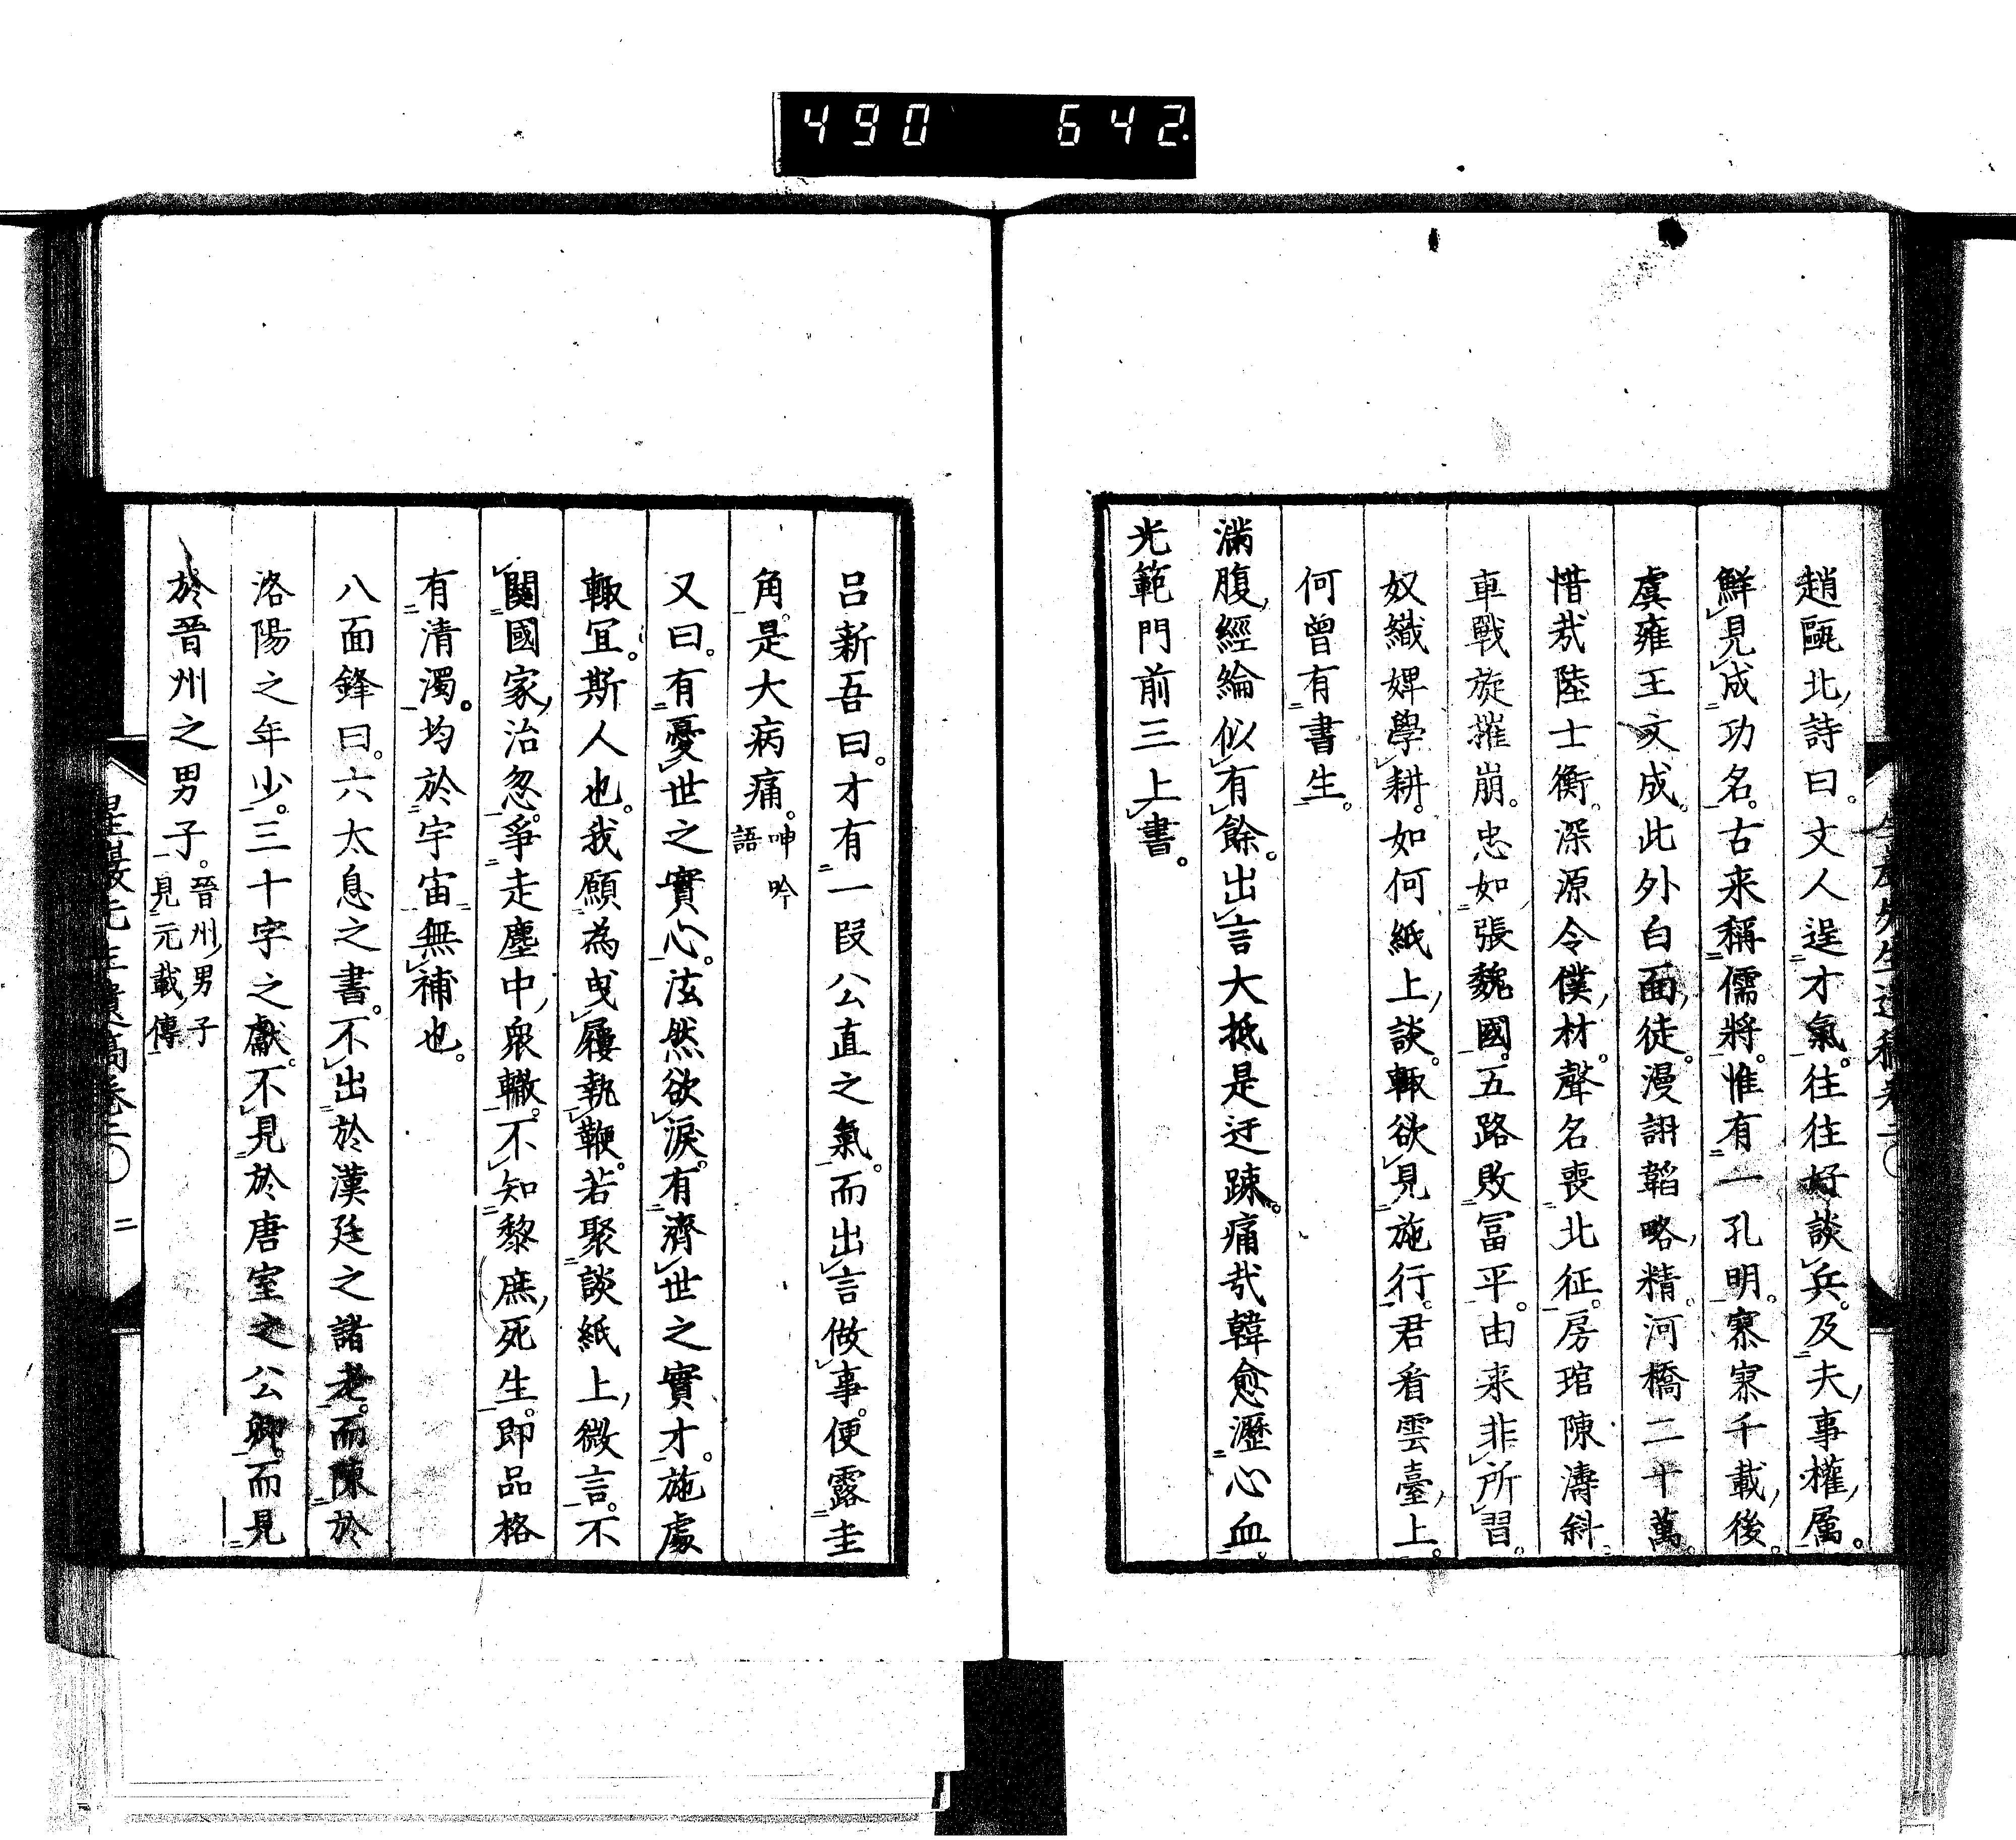 490 642
趙甌北詩曰。文人逞才氣。往往好談兵。及夫事權属。
鮮見成功名。古来稱儒將。惟有一孔明。寥寥千載後。
虞雍王文成。此外白面徒。漫詡韜略精。河橋二十萬。
惜哉陸士衡。深源令僕材。聲名喪北征。房琯陳濤斜。
車戰旋摧崩。忠如張魏國。五路敗冨平。由来非所習。
奴織婢學耕。如何紙上談。輙欲見施行。君看雲臺上。
何曾有書生。
滿腹經綸似有餘。出言大抵是迂踈。痛哉韓愈瀝心血。
光範門前三上書。
呂新吾曰。才有一段公直之氣。而出言做事。便露圭
角。是大病痛。呻吟語
又曰。有憂世之實心。泫然欲淚。有濟世之實才。施處
輙宜。斯人也。我願為曳履執鞭。若聚談紙上微言。不
関國家治忽。爭走塵中衆轍。不知黎庶死生。即品格
有清濁。均於宇宙無補也。
八面鋒曰。六太息之書。不出於漢廷之諸老。而陳於
洛陽之年少。三十字之獻。不見於唐室之公卿。而見
於晉州之男子。晉州男子見元載傳
二